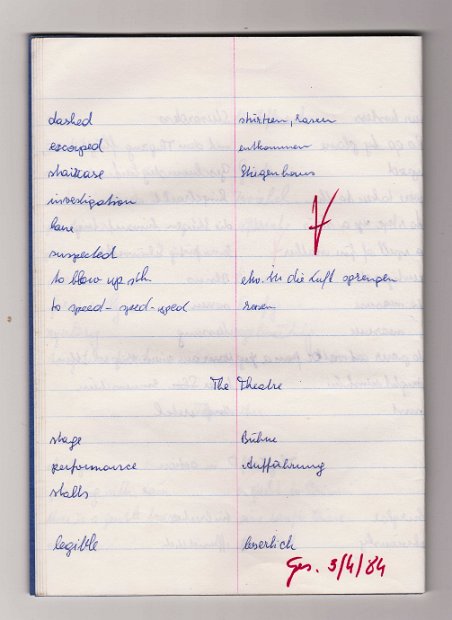 dashed stürtzen, rasen
escorped entkommen
staircase Stiegenhaus
investigation
lane
suspected
to blow up sth. etw. in die Luft sprengen
to speed - sped - sped rasen
The Theatre
stage Bühne
performance Aufführung
stalls
legible leserlich
Ges. 3/4/84